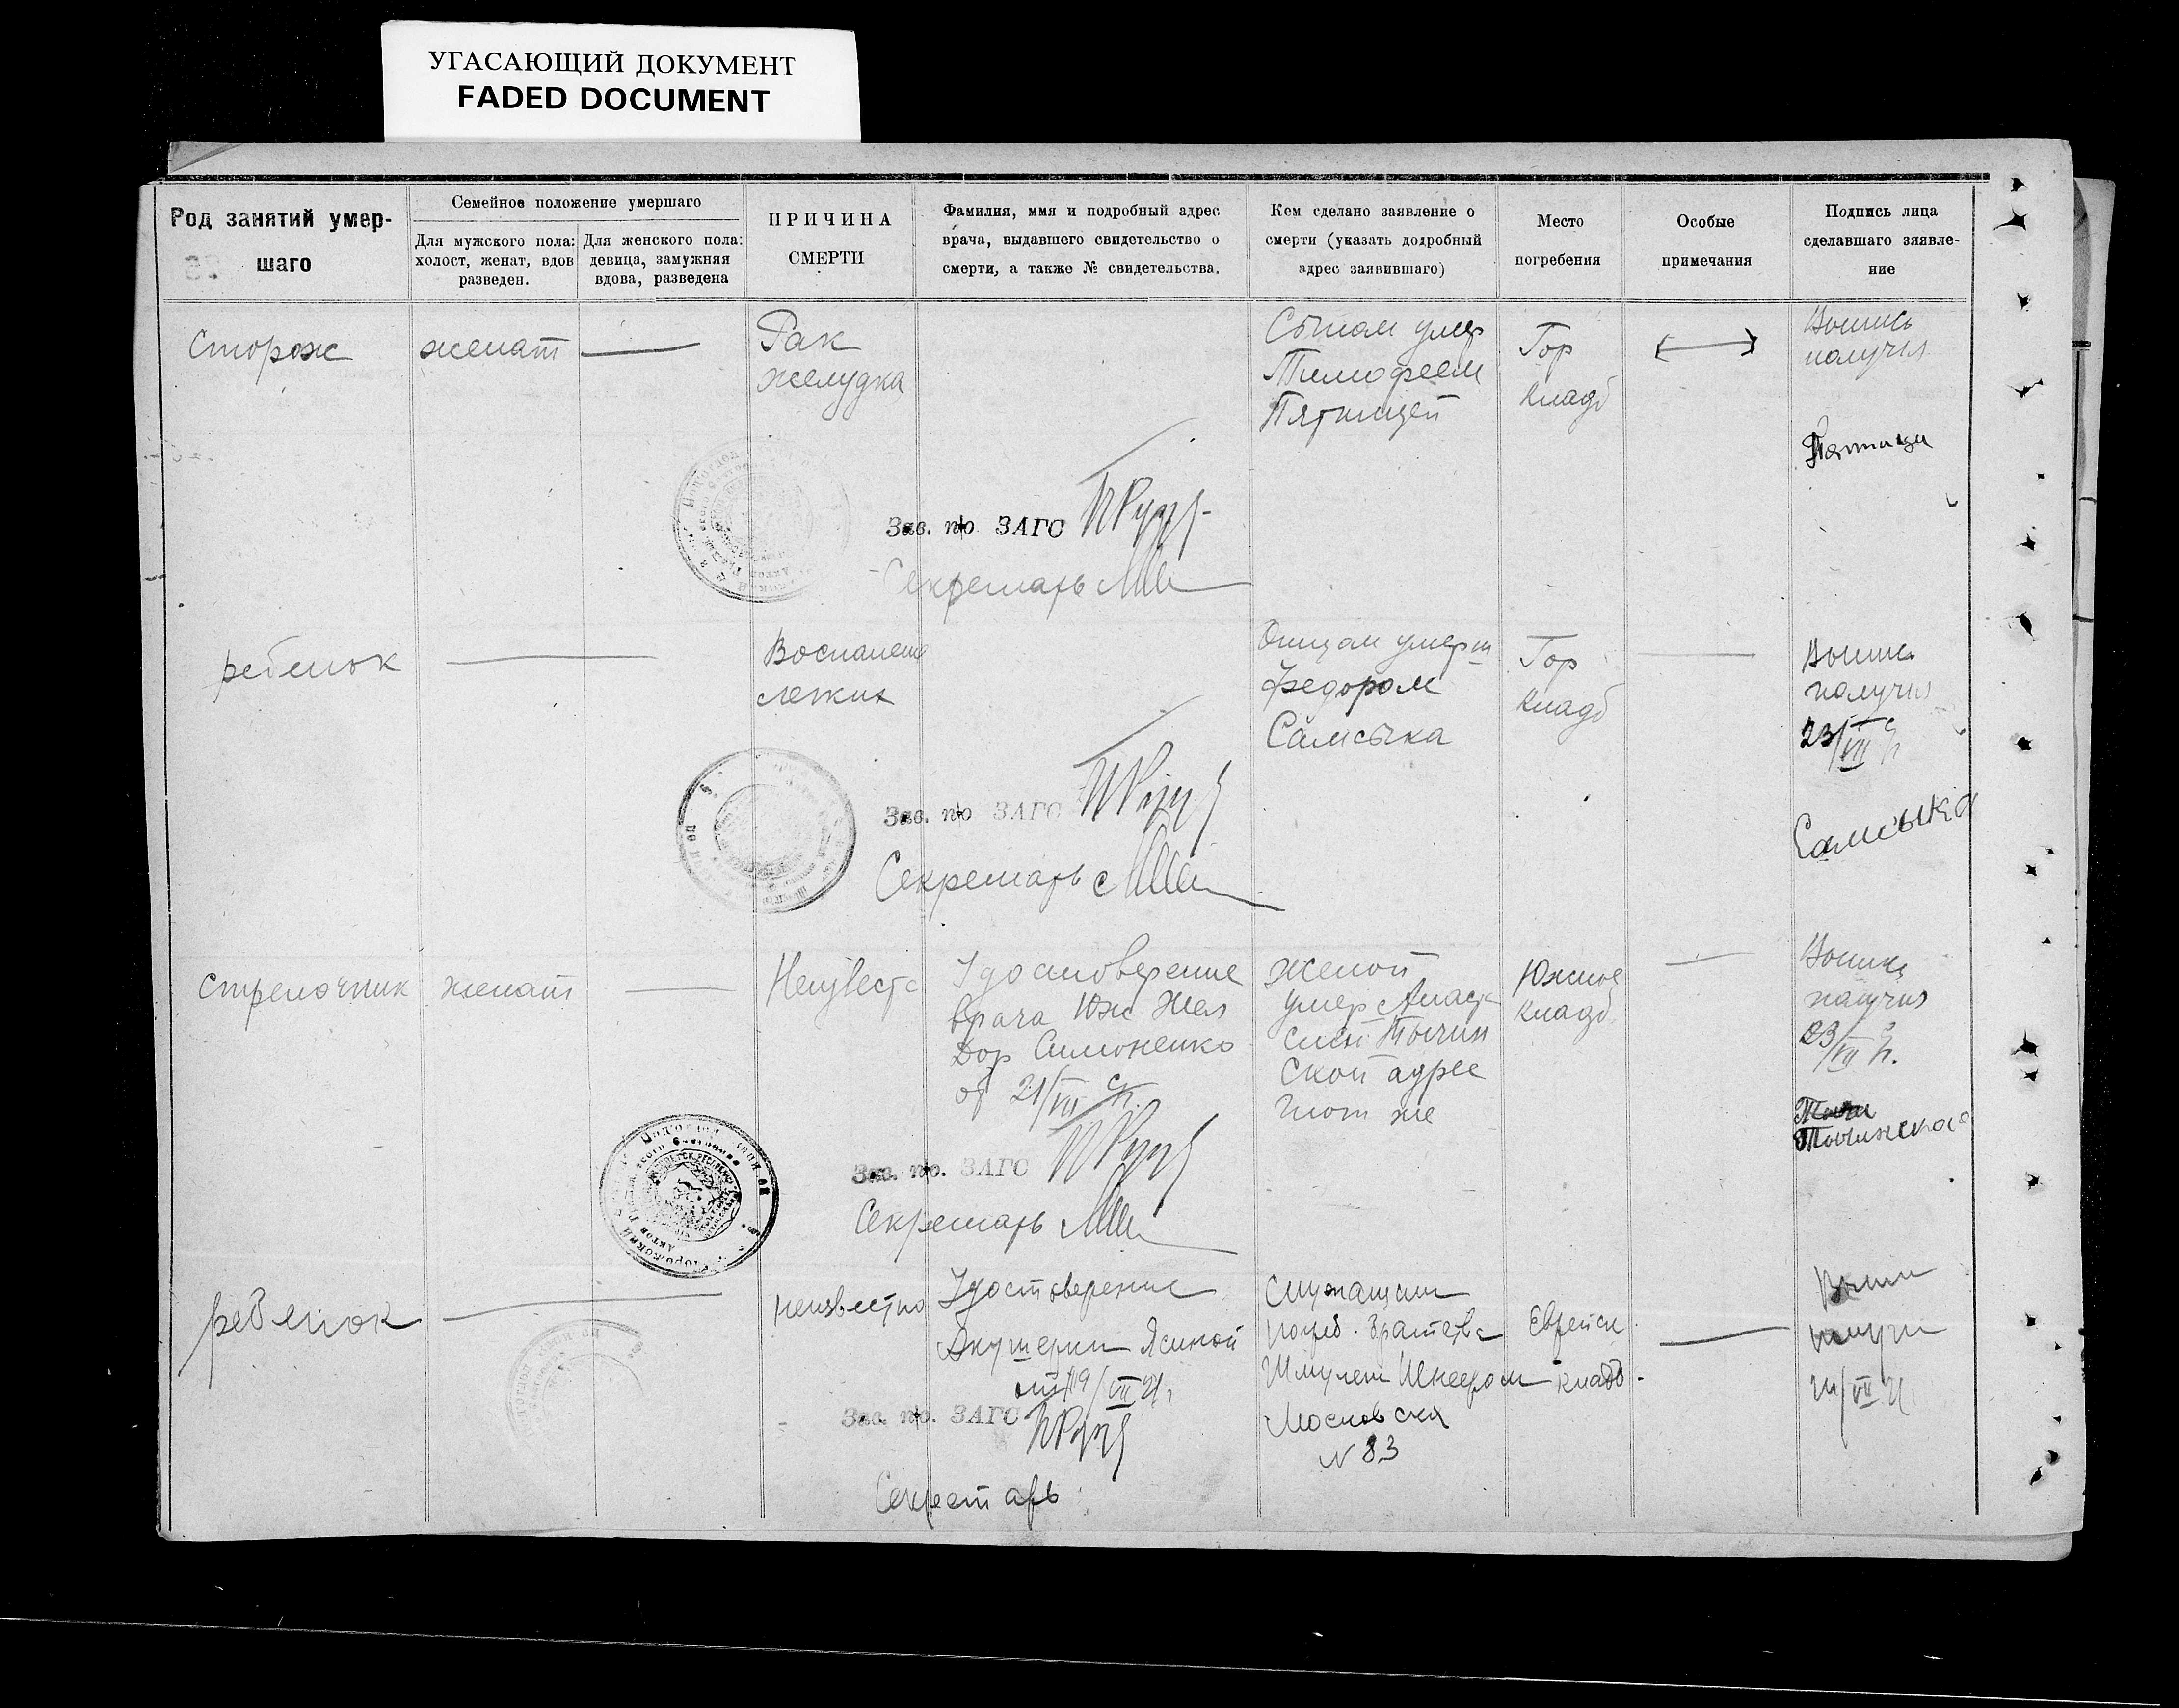 УГАСАЮЩИЙ ДОКУМЕНТ
FADED DOCUMENT
Род занятий умер-
шаго
Семейное положение умершаго
Для мужского пола:
холост, женат, вдов
разведен.
Для женского пола:
девица, замужняя
вдова, разведена
ПРИЧИНА
СМЕРТИ
Фамилия, ммя и подробный адрес
врача, выдавшего свидетельство о
смерти, а также № свидетельства.
Кем сделано заявление о
смерти (указать додробный
адрес заявившаго)
Место
погребения
Особые
примечания
Подпись лица
сделавшаго зяявле-
ние
Сторож
женат
Рак
желудка
Сыном умер
Тимофеем
Пятницей
Гор
кладб
получил
Зав. п/о ЗАГС
Секретарь
ребенок
Воспален
легких
Отцом умерш
Федором
Самсыка
Гор
кладб
получил
23/VII
Зав. п/о ЗАГС
Секретарь
Самсыка
стрелочник
женат
Неизвестн
Удостоверение
врача Юж Жел
Дор Симоненко
от 21/VII
женой
умер Анаста
сией Тычин
ской адрес
тот же
Южное
кладб
получил
23/VII
Тычинская
Зав. п/о. ЗАГС
Секретарь
ребенок
неизвестно
Удостоверение
Акушерки Ясиной
от 19/VII 21.
Служащим
погреб. братства
Шмулем Шнеером
Московская
N 83
Еврейск.
кладб.
Зав. п/о. ЗАГС
Секретарь